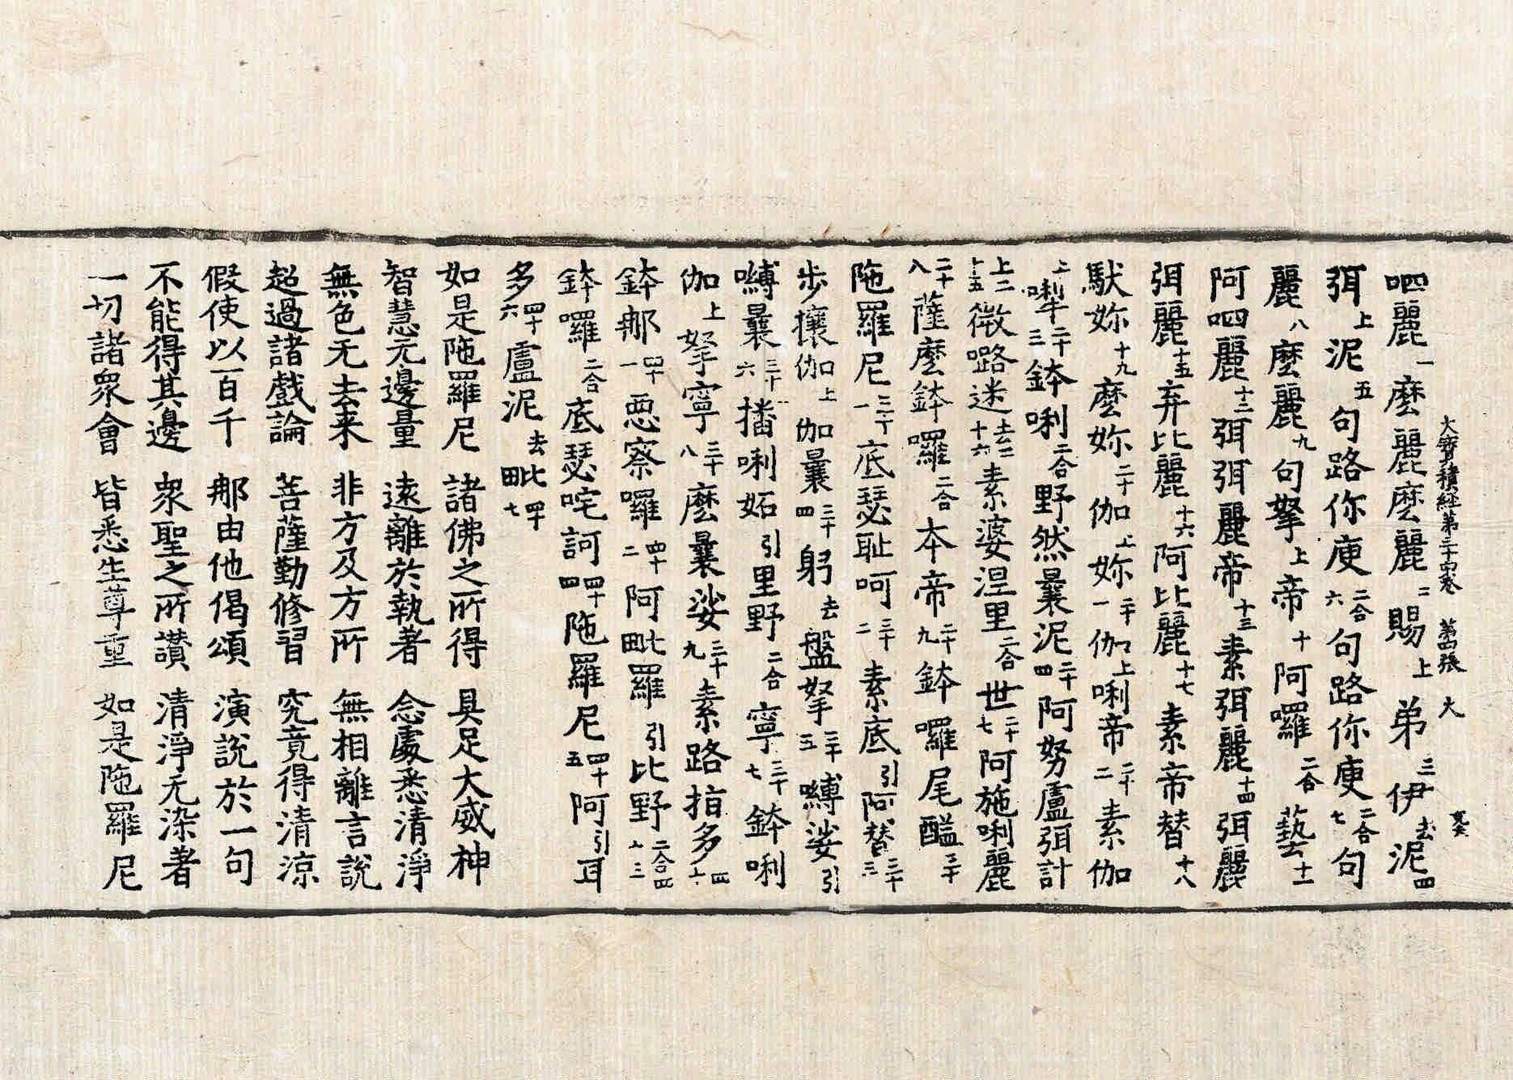 大寶積經第三十四卷 第四張 火
呬麗一麼麗麼麗二賜上弟三伊去泥四
弭上泥五句路你庾二合六句路你庾二合七句
麗八麼麗九句拏上帝十阿囉二合藝十一
阿呬麗十二弭弭麗帝十三素弭麗十四弭麗
弭麗十五弃比麗十六阿比麗十七素帝替十八
馱妳十九麼妳二十伽上妳二十一伽上唎帝二十二素伽
上唎二十三鉢唎二合野然曩泥二十四阿努盧弭計
上二十五微路迷去二十六素婆涅里二合世二十七阿施唎麗
二十八薩麼鉢囉二合本帝二十九鉢囉尾醯三十
陁羅尼三十一底瑟耻呵三十二素底引阿替三十三
步攘伽上伽曩三十四躬去盤拏三十五嚩娑引
嚩曩三十六播唎妬引里野二合寧三十七鉢唎
伽上拏寧三十八麼曩娑三十九素路指多四十
鉢那四十一惡察囉四十二阿毗羅引比野二合四十三
鉢囉二合底瑟咤訶四十四陁羅尼四十五阿引耳
多四十六盧泥去毗四十七
如是陁羅尼 諸佛之所得 具足大威神
智慧无邊量 遠離於執著 念處悉清淨
無色无去来 非方及方所 無相離言說
超過諸戲論 菩薩勤修習 究竟得清涼
假使以百千 那由他偈頌 演說於一句
不能得其邊 衆聖之所讃 清淨无染著
一切諸衆會 皆悉生尊重 如是陁羅尼